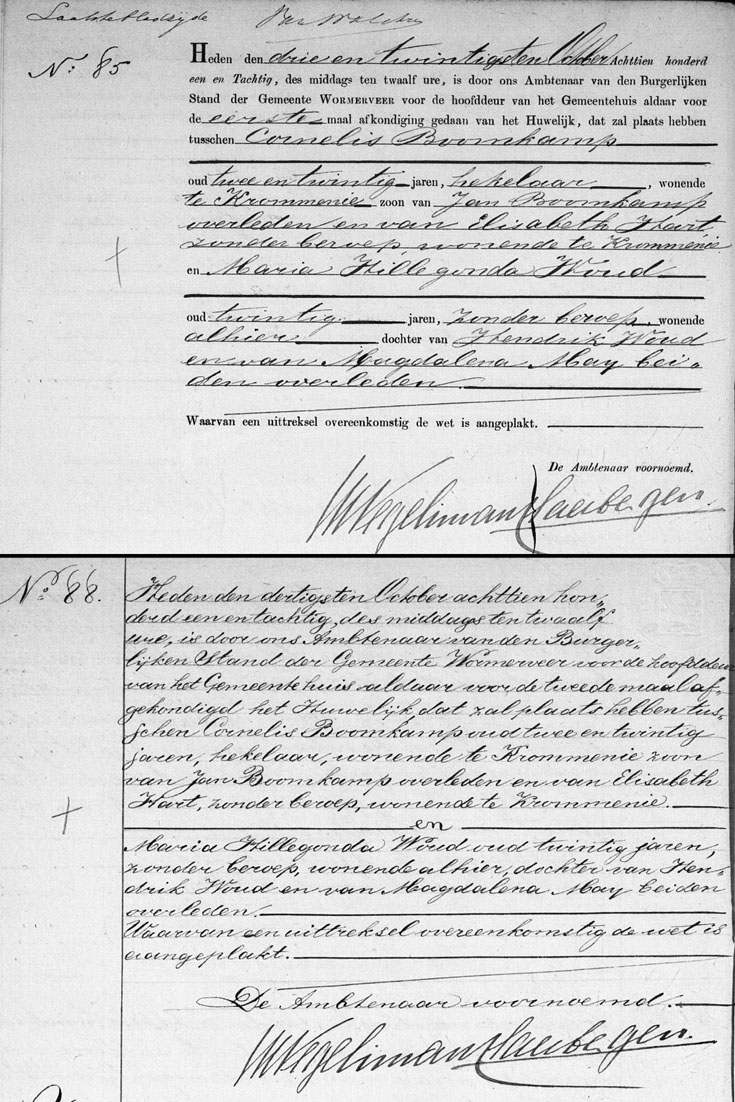 Laatste bladzijde
No: 85
Heden den drie en twintigsten October Achttien honderd
een en Tachtig, des middags ten twaalf ure, is door ons Ambtenaar van den Burgerlijken
Stand der Gemeente WORMERVEER voor de hoofddeur van het Gemeentehuis aldaar voor
de eerste maal afkondiging gedaan van het Huwelijk, dat zal plaats hebben
tusschen Cornelis Boomkamp
oud twee en twintig jaren, hekelaar, wonende
te Krommenie zoon van Jan Boomkamp
overleden en van Elizabeth Hart,
zonder beroep, wonende te Krommenie
en Maria Hillegonda Woud
oud twintig jaren, zonder beroep, wonende
alhier dochter van Hendrik Woud
en van Magdalena May bei-
den overleden.
Waarvan een uittreksel overeenkomstig de wet is aangeplakt.
De Ambtenaar voornoemd.
No. 88.
Heden den dertigsten October achttien hon-
derd een en tachtig, des middags ten twaalf
ure, is door ons Ambtenaar van den Burger-
lijken Stand der Gemeente Wormerveer voor de hoofddeur
van het Gemeentehuis aldaar voor de tweede maal af-
gekondigd het Huwelijk, dat zal plaats hebben tus-
schen Cornelis Boomkamp oud twee en twintig
jaren, hekelaar, wonende te Krommenie zoon
van Jan Boomkamp overleden en van Elisabeth
Hart, zonder beroep, wonende te Krommenie.
en
Maria Hillegonda Woud oud twintig jaren,
zonder beroep, wonende alhier, dochter van Hen-
drik Woud en van Magdalena May beiden
overleden.
Waarvan een uittreksel overeenkomstig de wet is
aangeplakt.
De Ambtenaar voornoemd.